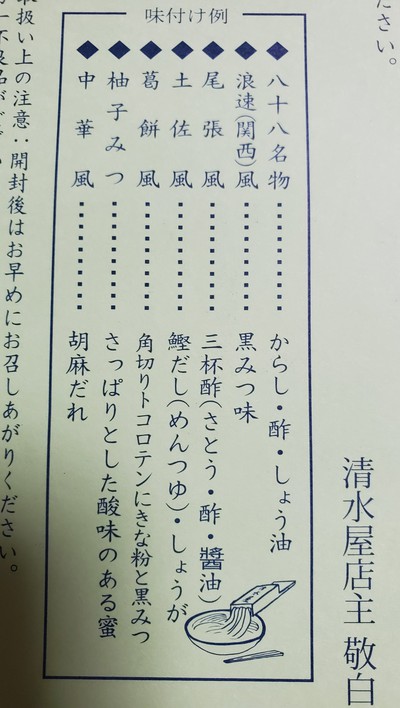 ださい。
清水屋店主 敬白
味付け例
◆八十八名物…………からし・酢・しょう油
◆浪速(関西)風…………黒みつ味
◆尾張風…………三杯酢(さとう・酢・醬油)
◆土佐風…………鰹だし(めんつゆ)・しょうが
◆葛餅風…………角切りトコロテンにきな粉と黒みつ
◆柚子みつ…………さっぱりとした酸味のある蜜
◆中華風…………胡麻だれ
取扱い上の注意:開封後はお早めにお召しあがりください。